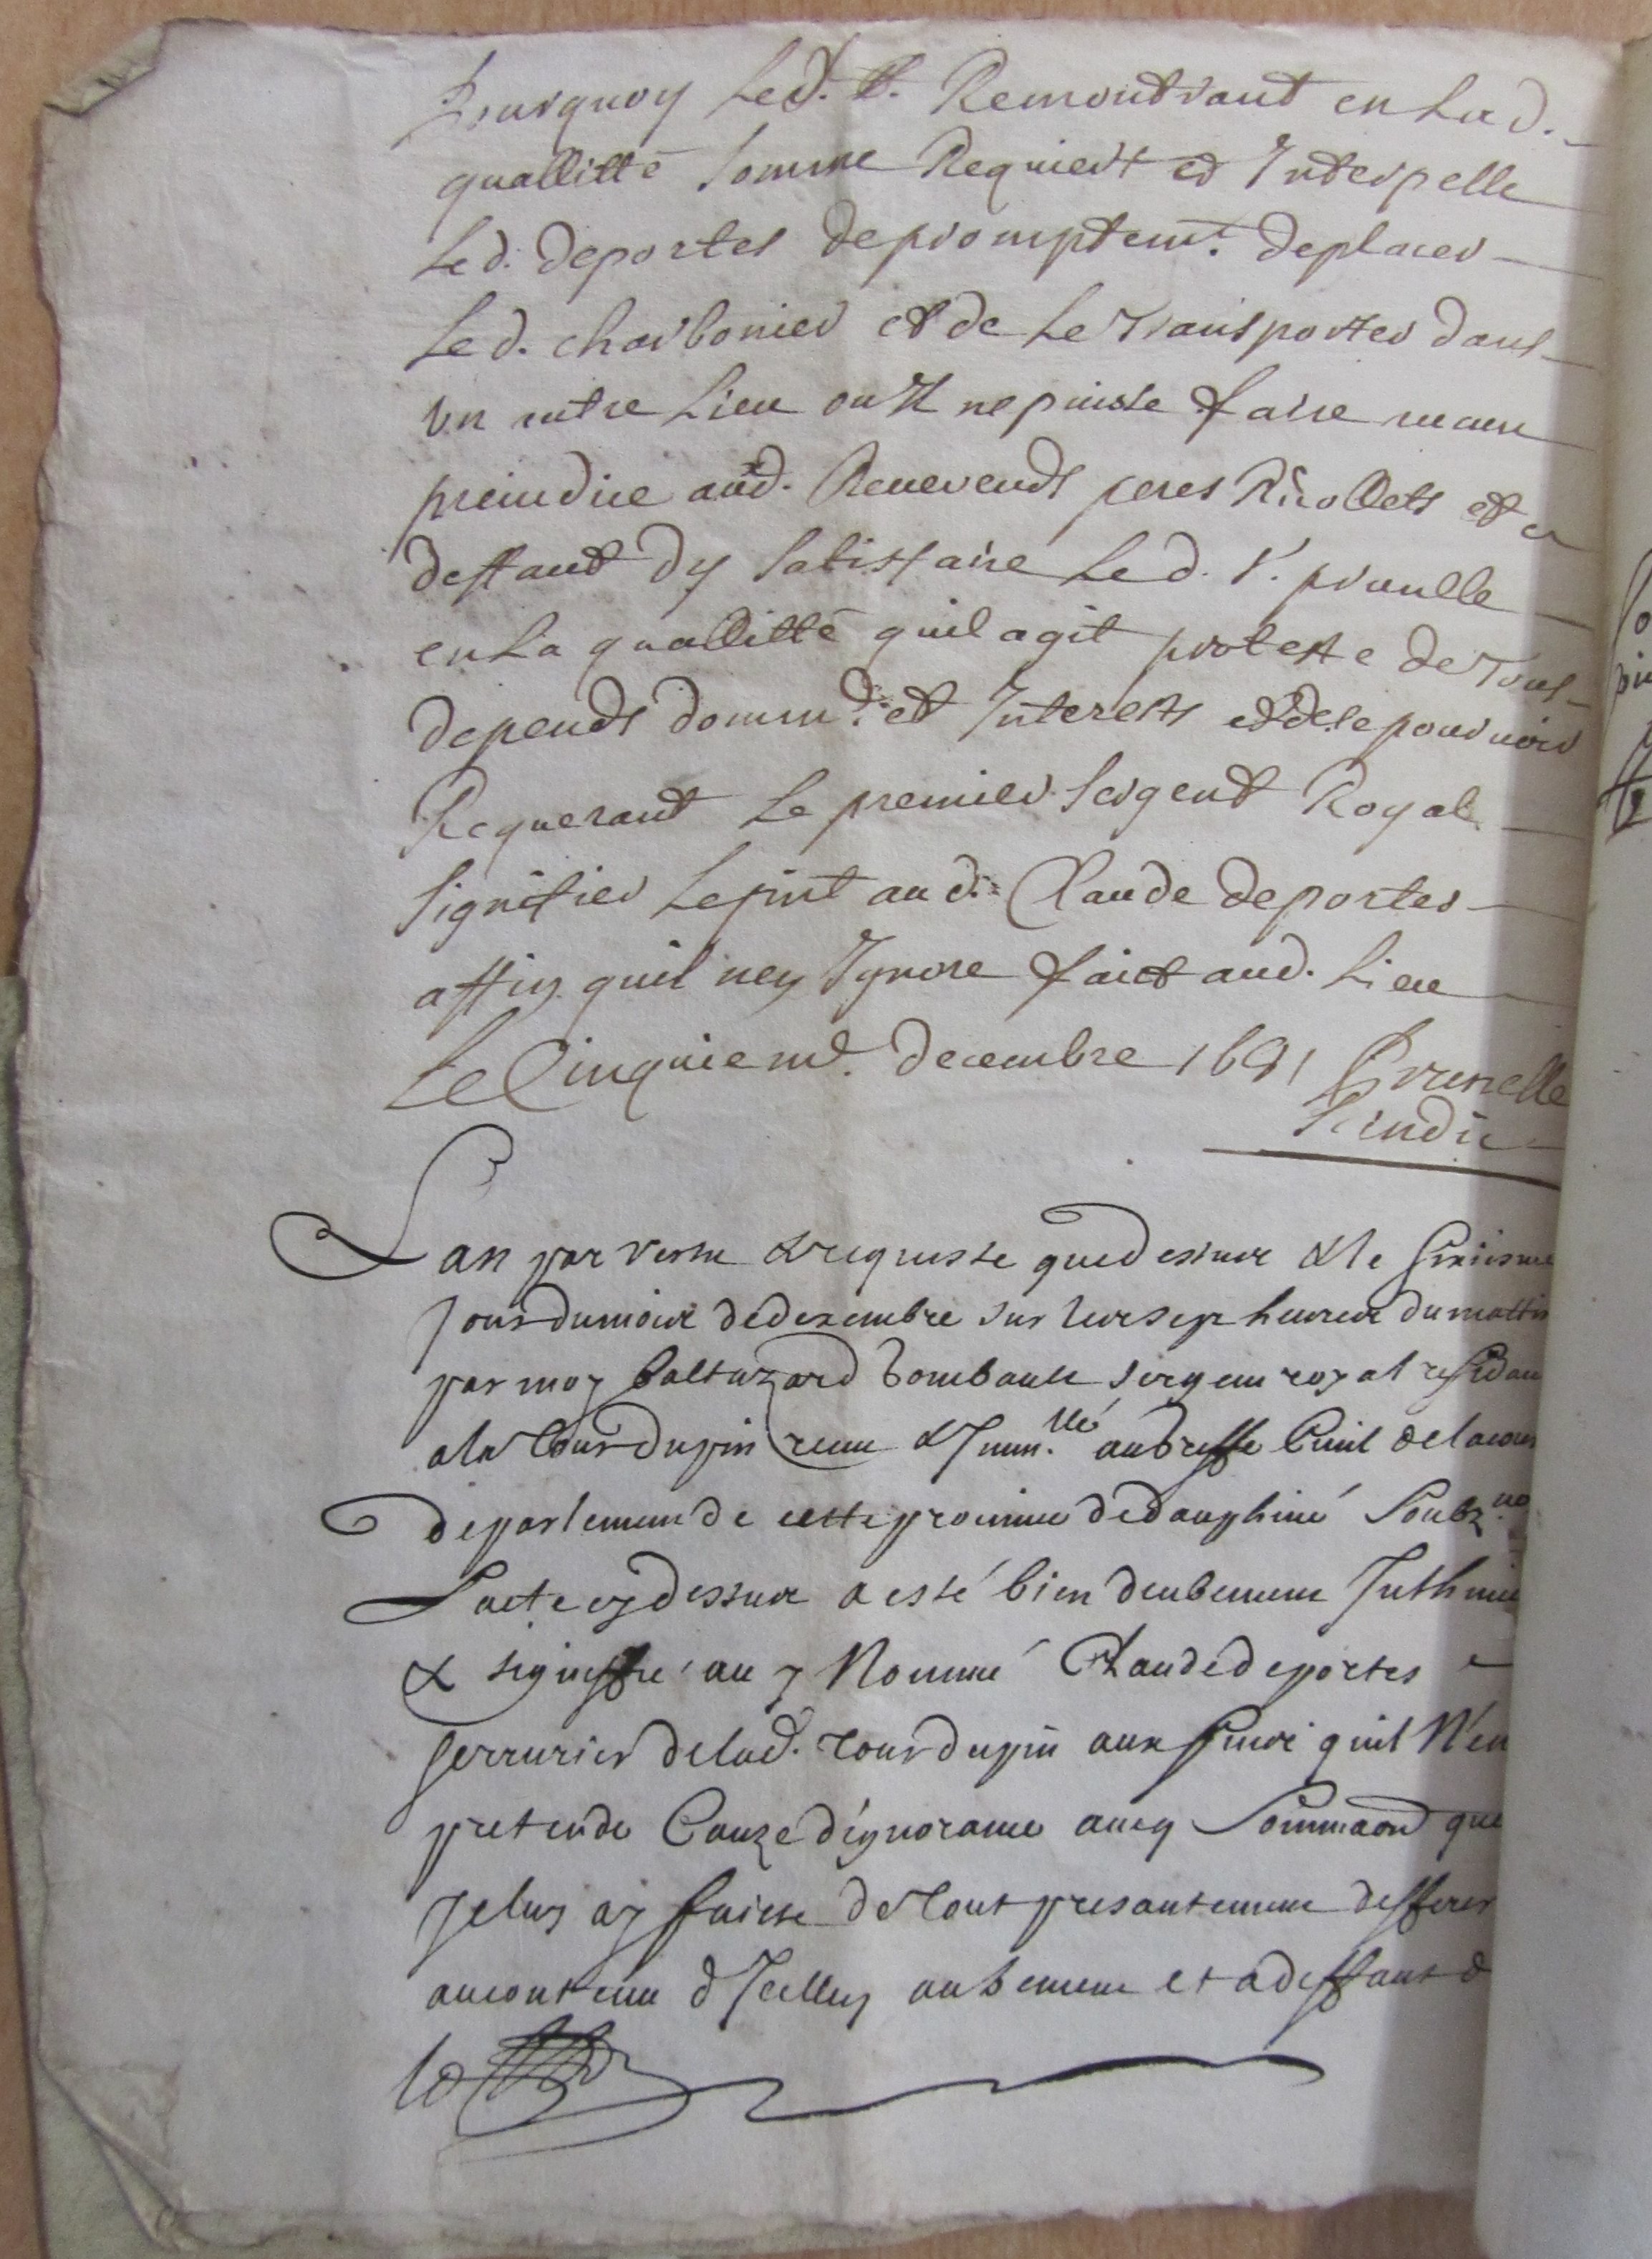 Pourquoy Led. S. Remontrant en Lad.
quallitté Somme Requiert et Interpelle
Led. deportes de promptemt. deplacer
Led. charbonier et de Le Transporter dans
Un autre Lieu ou Il ne puisse faire aucun
preiudice aud. Reverends peres Ricollets et a
deffaut dy Satisfaire Led. S. prunelle
en La quallitté quil agit proteste de Tous
depends domm. et Interests et de se pourvoir
Requerant Le premier Sergent Royal
Signifier Le pnt aud. Claude deportes
affin quil ney Ignore faict aud. Lieu
Le Cinquiem. decembre 1691 Prunelle
Sindic
Lan par vertu & requiste que dessus & le sixiesme
Jour du mois de dezembre sur les sept heures du mattin
par moy baltazard bombault sergent royal residant
a la Tour du pin receu & Imm.llé au greffe Civil de la cour
de parlement de cette province de dauphiné Soubz.né
Lacte cy dessus a esté bien deubement Inthimé
& signiffié au y Nommé Claude deportes
serrurier de lad. Tour du pin aux fins quil N'en
pretende Cauze d'ignorance avecq Sommaon que
Je luy ay faicte de Tout presantement defferer
au contenu d'Icelluy autrement et a deffaut d